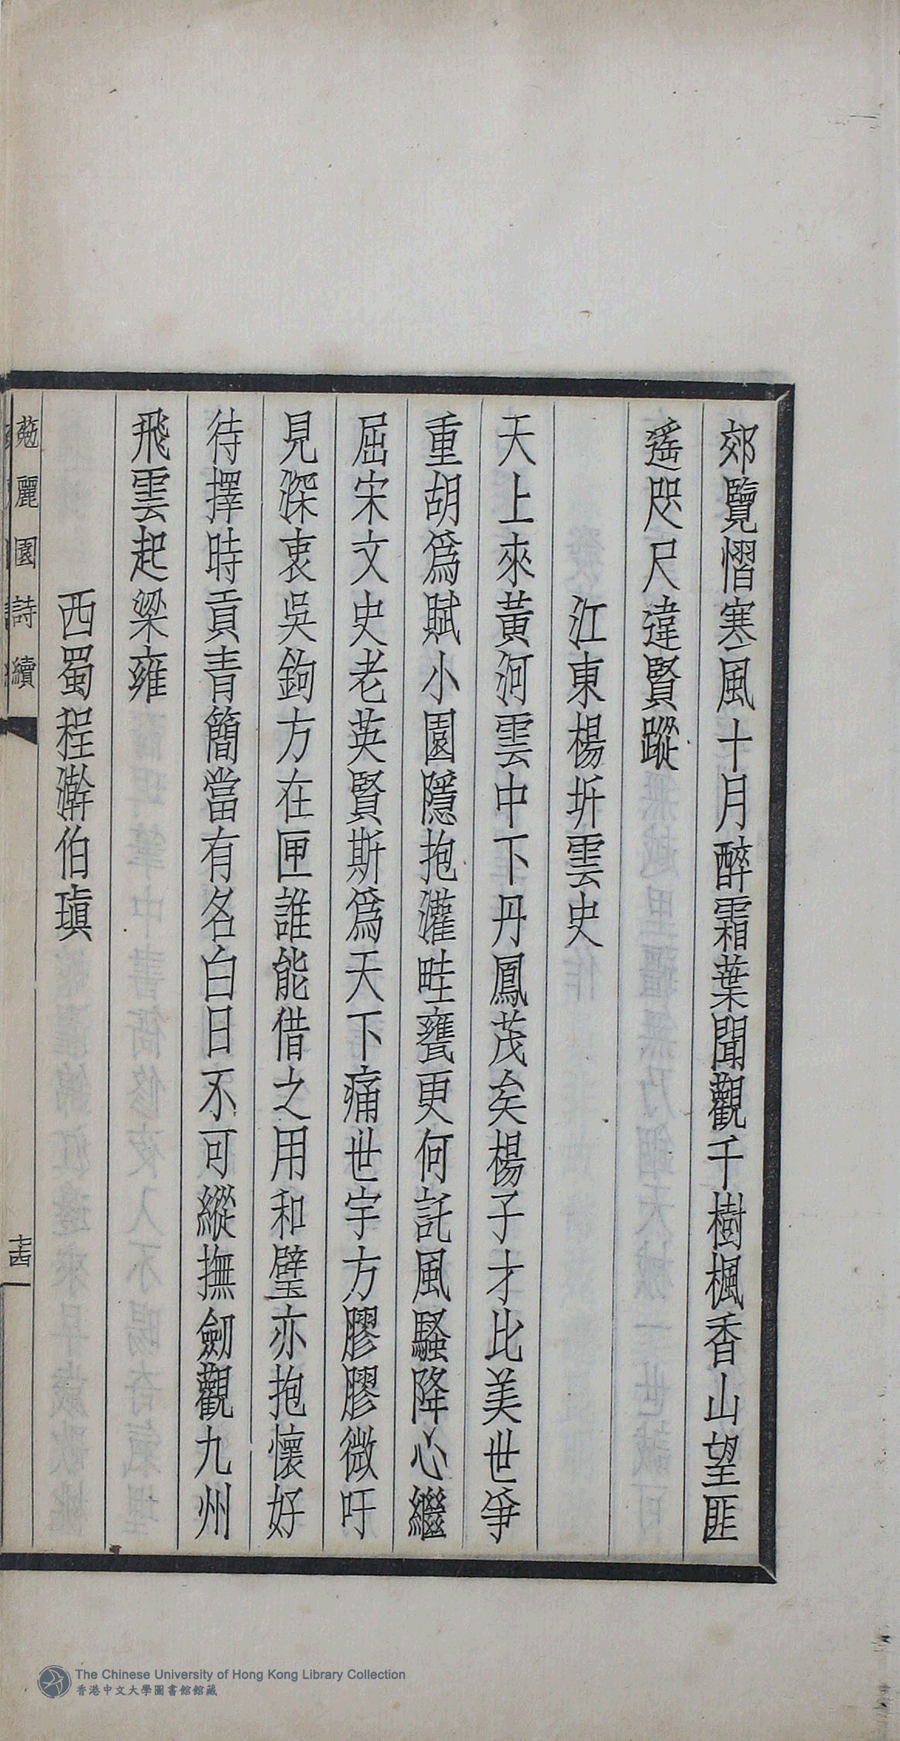 郊覽慴寒風十月醉霜葉聞觀千樹楓香山望匪
遥咫尺違賢蹤
江東楊圻雲史
天上來黃河雲中下丹鳳茂矣楊子才比美世爭
重胡爲賦小園隱抱灌畦甕更何託風騷降心繼
屈宋文史老英賢斯爲天下痛世宇方膠膠微吁
見深衷吳鉤方在匣誰能借之用和璧亦抱懷好
待擇時貢青簡當有名白日不可縱撫劒觀九州
飛雲起梁雍
西蜀程澣伯瑱
麗園詩續
十四
The Chinese University of Hong Kong Library Collection
香港中文大學圖書館館藏